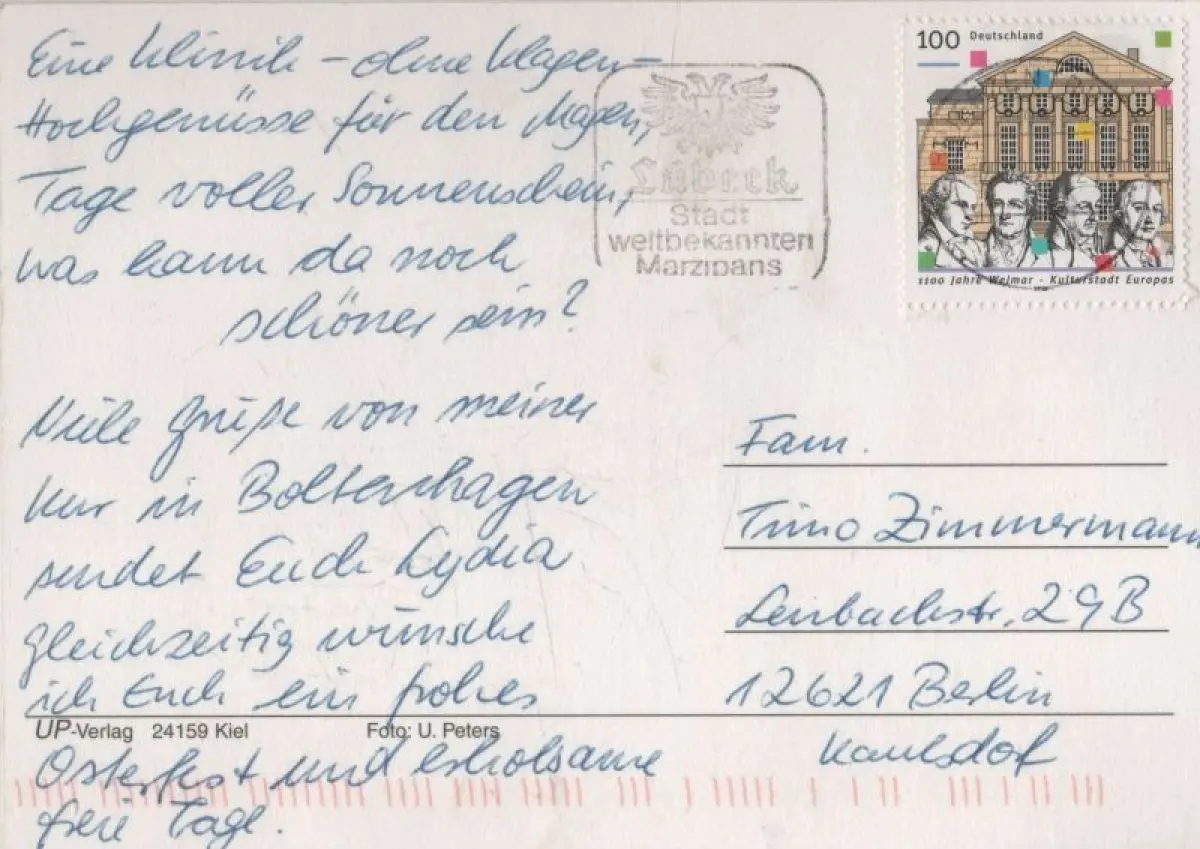 Eine Klinik – ohne Klagen –
Hochgenüsse für den Magen,
Tage voller Sonnenschein,
was kann da noch
schöner sein?
Viele Grüße von meiner
Kur in Boltenhagen
sendet Euch Lydia
Gleichzeitig wünsche
ich Euch ein frohes
Osterfest und erholsame
freie Tage.
UP-Verlag 24159 Kiel Foto: U. Peters
Lübeck
Stadt
weltbekannten
Marzipans
100 Deutschland
1100 Jahre Weimar - Kulturstadt Europas
Fam.
Timo Zimmermann
Lenbachstr. 29B
12621 Berlin
Kaulsdof